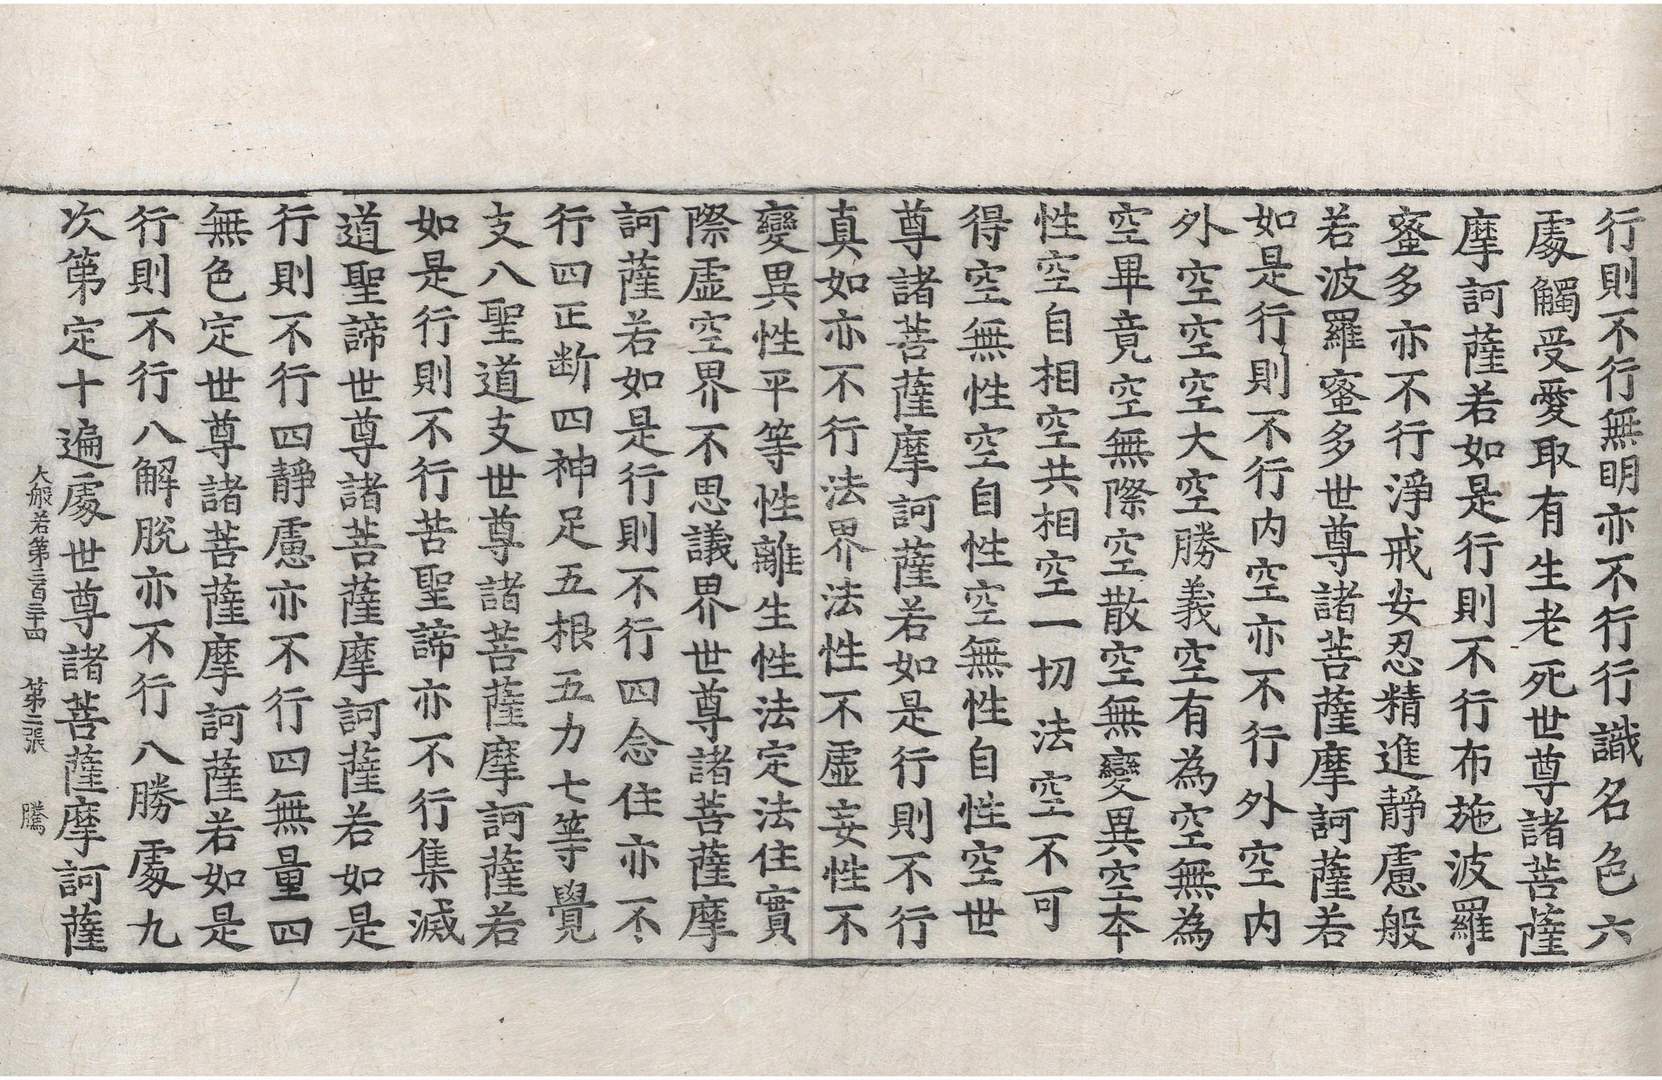 行則不行無明亦不行行識名色六
處觸受愛取有生老死世尊諸菩薩
摩訶薩若如是行則不行布施波羅
蜜多亦不行淨戒安忍精進靜慮般
若波羅蜜多世尊諸菩薩摩訶薩若
如是行則不行内空亦不行外空内
外空空空大空勝義空有為空無為
空畢竟空無際空散空無變異空本
性空自相空共相空一切法空不可
得空無性空自性空無性自性空世
尊諸菩薩摩訶薩若如是行則不行
真如亦不行法界法性不虛妄性不
變異性平等性離生性法定法住實
際虛空界不思議界世尊諸菩薩摩
訶薩若如是行則不行四念住亦不
行四正断四神足五根五力七等覺
支八聖道支世尊諸菩薩摩訶薩若
如是行則不行苦聖諦亦不行集滅
道聖諦世尊諸菩薩摩訶薩若如是
行則不行四靜慮亦不行四無量四
無色定世尊諸菩薩摩訶薩若如是
行則不行八解脫亦不行八勝處九
次第定十遍處世尊諸菩薩摩訶薩
大般若第三百三十四 第二張 騰